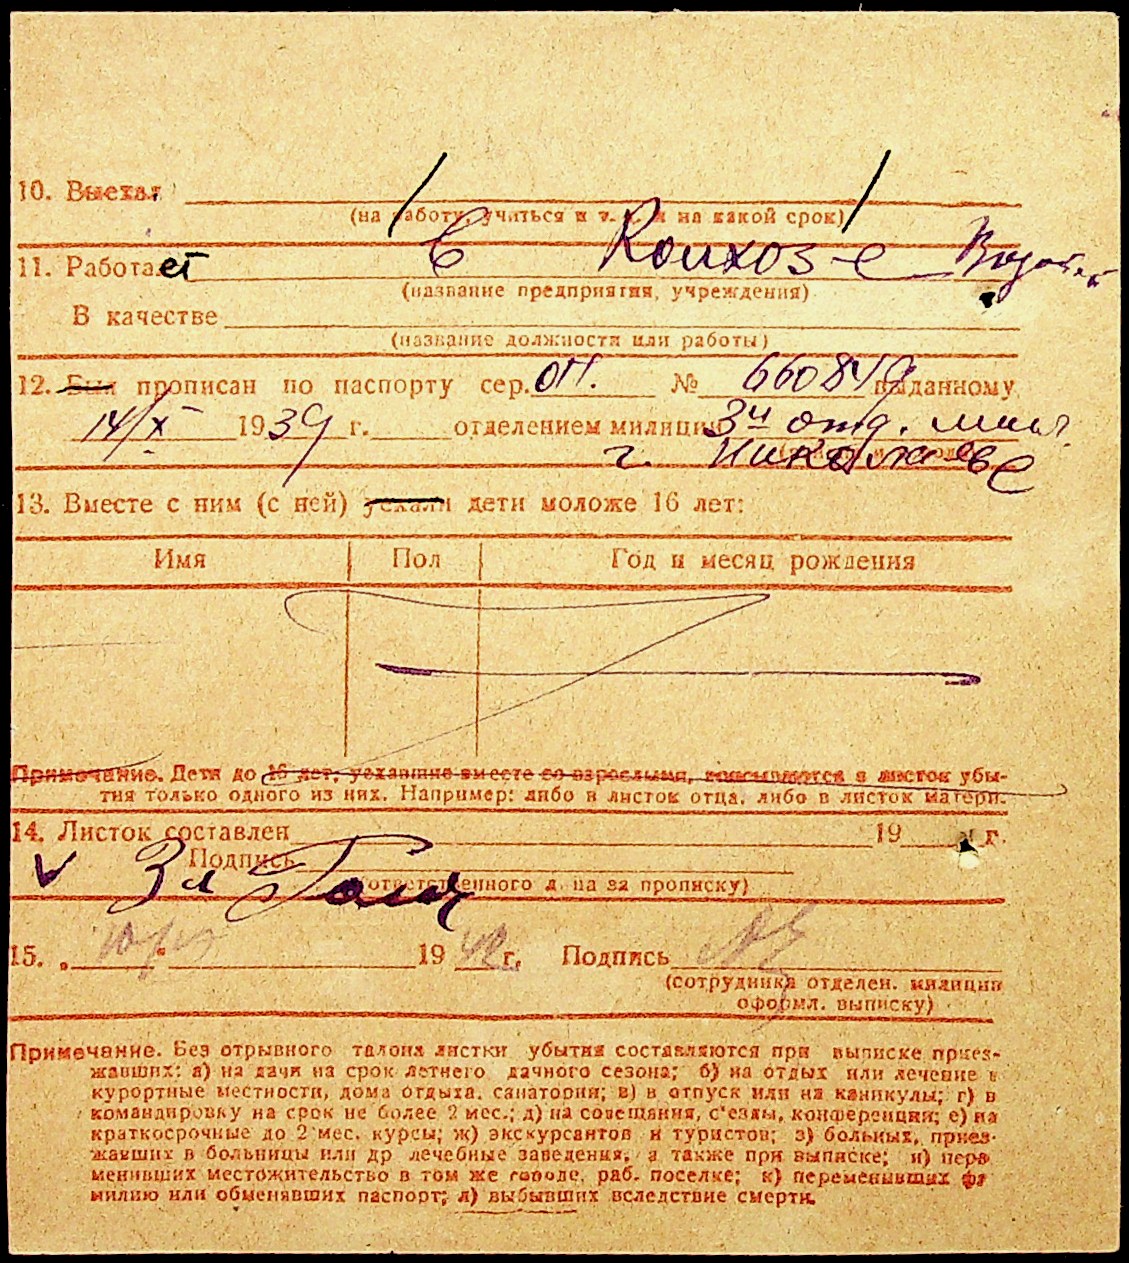 10. Выехал
(на работу, учиться и т. д. и на какой срок)
11. Работает в Колхоз-е
(название предприятия, учреждения)
В качестве
(название должности или работы)
12. Был прописан по паспорту сер. ОП. № 660849 выданному
14/X 1939 г. отделением милиции 3м отд. мил.
г. Николаеве
13. Вместе с ним (с ней) уехали дети моложе 16 лет:
Имя Пол Год и месяц рождения
Примечание. Дети до 16 лет, уехавшие вместе со взрослыми, вписываются в листок убы-
тия только одного из них. Например: либо в листок отца, либо в листок матери.
14. Листок составлен 19 г.
Подпись
(ответственного л. ца за прописку)
15. „ “ 1940 г. Подпись
(сотрудника отделен. милиции
оформл. выписку)
Примечание. Без отрывного талона листки убытия составляются при выписке приез-
жавших: а) на дачи на срок летнего дачного сезона; б) на отдых или лечение в
курортные местности, дома отдыха, санатории; в) в отпуск или на каникулы; г) в
командировку на срок не более 2 мес.; д) на совещания, с'езды, конференции; е) на
краткосрочные до 2 мес. курсы; ж) экскурсантов и туристов; з) больных, приез-
жавших в больницы или др лечебные заведения, а также при выписке; и) пере
менивших местожительство в том же городе, раб. поселке; к) переменивших фа
милию или обменявших паспорт; л) выбывших вследствие смерти.